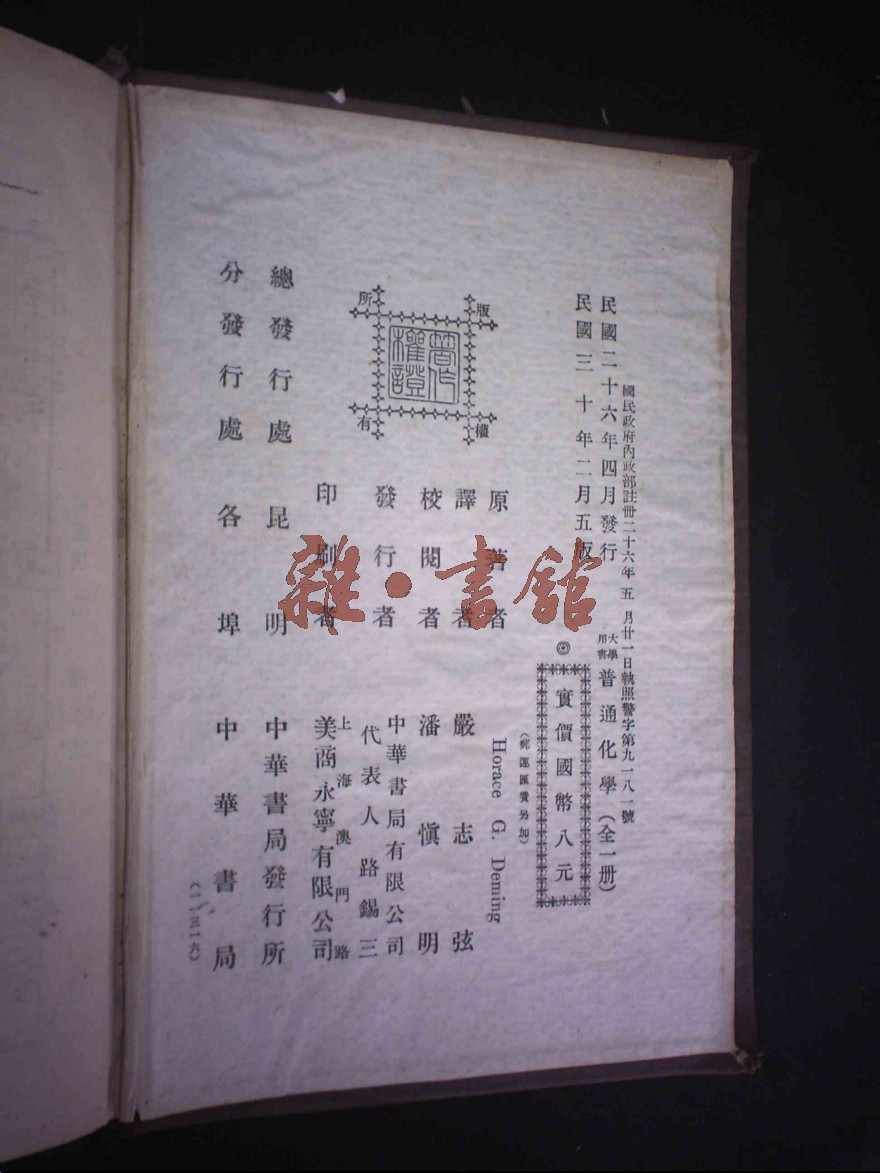 國民政府內政部註冊二十六年五月廿一日執照警字第九一八一號
民國二十六年四月發行
民國三十年二月五版
大學用書 普通化學(全一册)
◎實價國幣八元
(郵運匯費另加)
原著者 Horace G. Deming
譯者 嚴志弦
校閱者 潘愼明
發行者 中華書局有限公司
代表人路錫三
印刷者 上海澳門路
美商永寧有限公司
總發行處 昆明 中華書局發行所
分發行處 各埠 中華書局
(一一三一六)
版權所有
著作權證
雜·書館